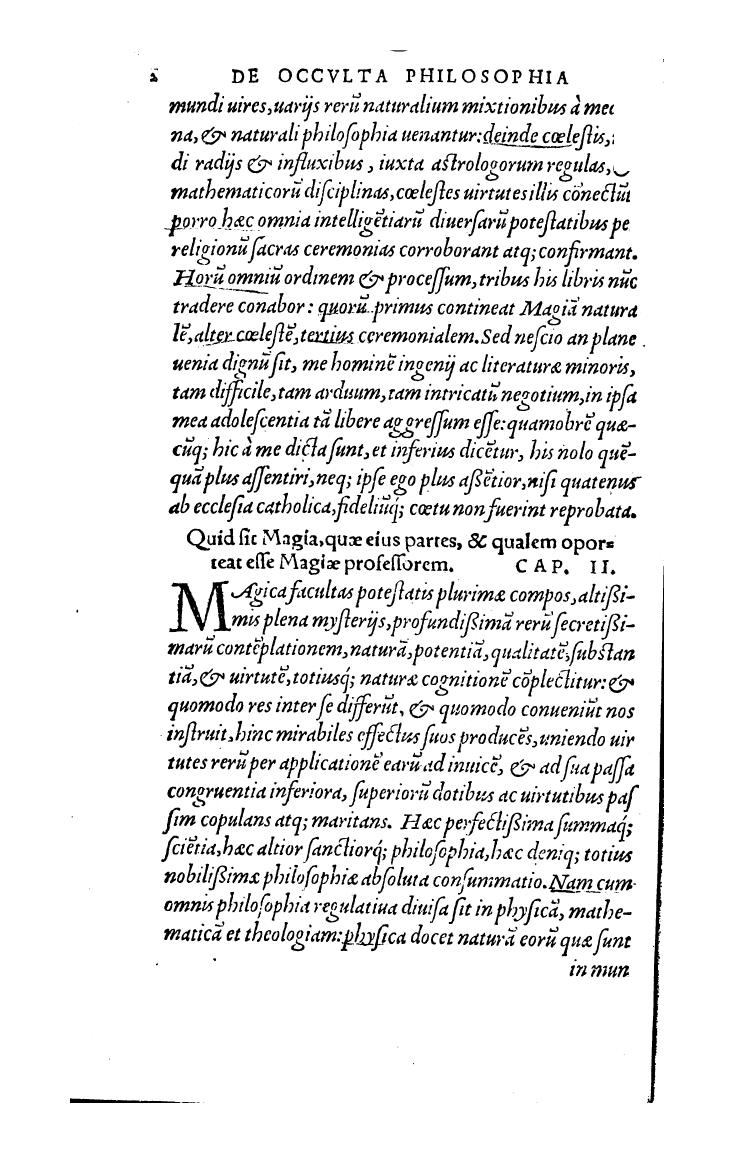 2 DE OCCVLTA PHILOSOPHIA
mundi uires, uarijs rerũ naturalium mixtionibus à me
na, & naturali philoſophia uenantur: deinde cœleſtis,
di radijs & influxibus, iuxta aſtrologorum regulas,
mathematicorũ diſciplinas, cœleſtes uirtutes illis cõnectũt
porro hæc omnia intelligẽtiarũ diuerſarũ poteſtatibus pe
religionũ ſacras ceremonias corroborant atq; confirmant.
Horũ omniũ ordinem & proceſſum, tribus his libris nũc
tradere conabor: quorũ primus contineat Magiã natura
lẽ, alter cœleſtẽ, tertius ceremonialem. Sed neſcio an plane
uenia dignũ ſit, me hominẽ ingenij ac literaturæ minoris,
tam difficile, tam arduum, tam intricatũ negotium, in ipſa
mea adoleſcentia tã libere aggreſſum eſſe: quamobrẽ quæ-
cũq; hic à me dicta ſunt, et inferius dicẽtur, his nolo quẽ-
quã plus aſſentiri, neq; ipſe ego plus aßẽtior, niſi quatenus
ab eccleſia catholica, fideliũq́; cœtu non fuerint reprobata.
Quid ſit Magia, quæ eius partes, & qualem opor=
teat eſſe Magiæ profeſſorem. CAP. II.
MAgica facultas poteſtatis plurimæ compos, altißi-
mis plena myſterijs, profundißimã rerũ ſecretißi-
marũ contẽplationem, naturã, potentiã, qualitatẽ, ſubſtan
tiã, & uirtutẽ, totiusq́; naturæ cognitionẽ cõplectitur: &
quomodo res inter ſe differũt, & quomodo conueniũt nos
inſtruit, hinc mirabiles effectus ſuos producẽs, uniendo uir
tutes rerũ per applicationẽ earũ ad inuicẽ, & ad ſua paſſa
congruentia inferiora, ſuperiorũ dotibus ac uirtutibus paſ
ſim copulans atq; maritans. Hæc perfectißima ſummaq́;
ſciẽtia, hæc altior ſanctiorq́; philoſophia, hæc deniq; totius
nobilißimæ philoſophiæ abſoluta conſummatio. Nam cum
omnis philoſophia regulatiua diuiſa ſit in phyſicã, mathe-
maticã et theologiam: phyſica docet naturã eorũ quæ ſunt
in mun